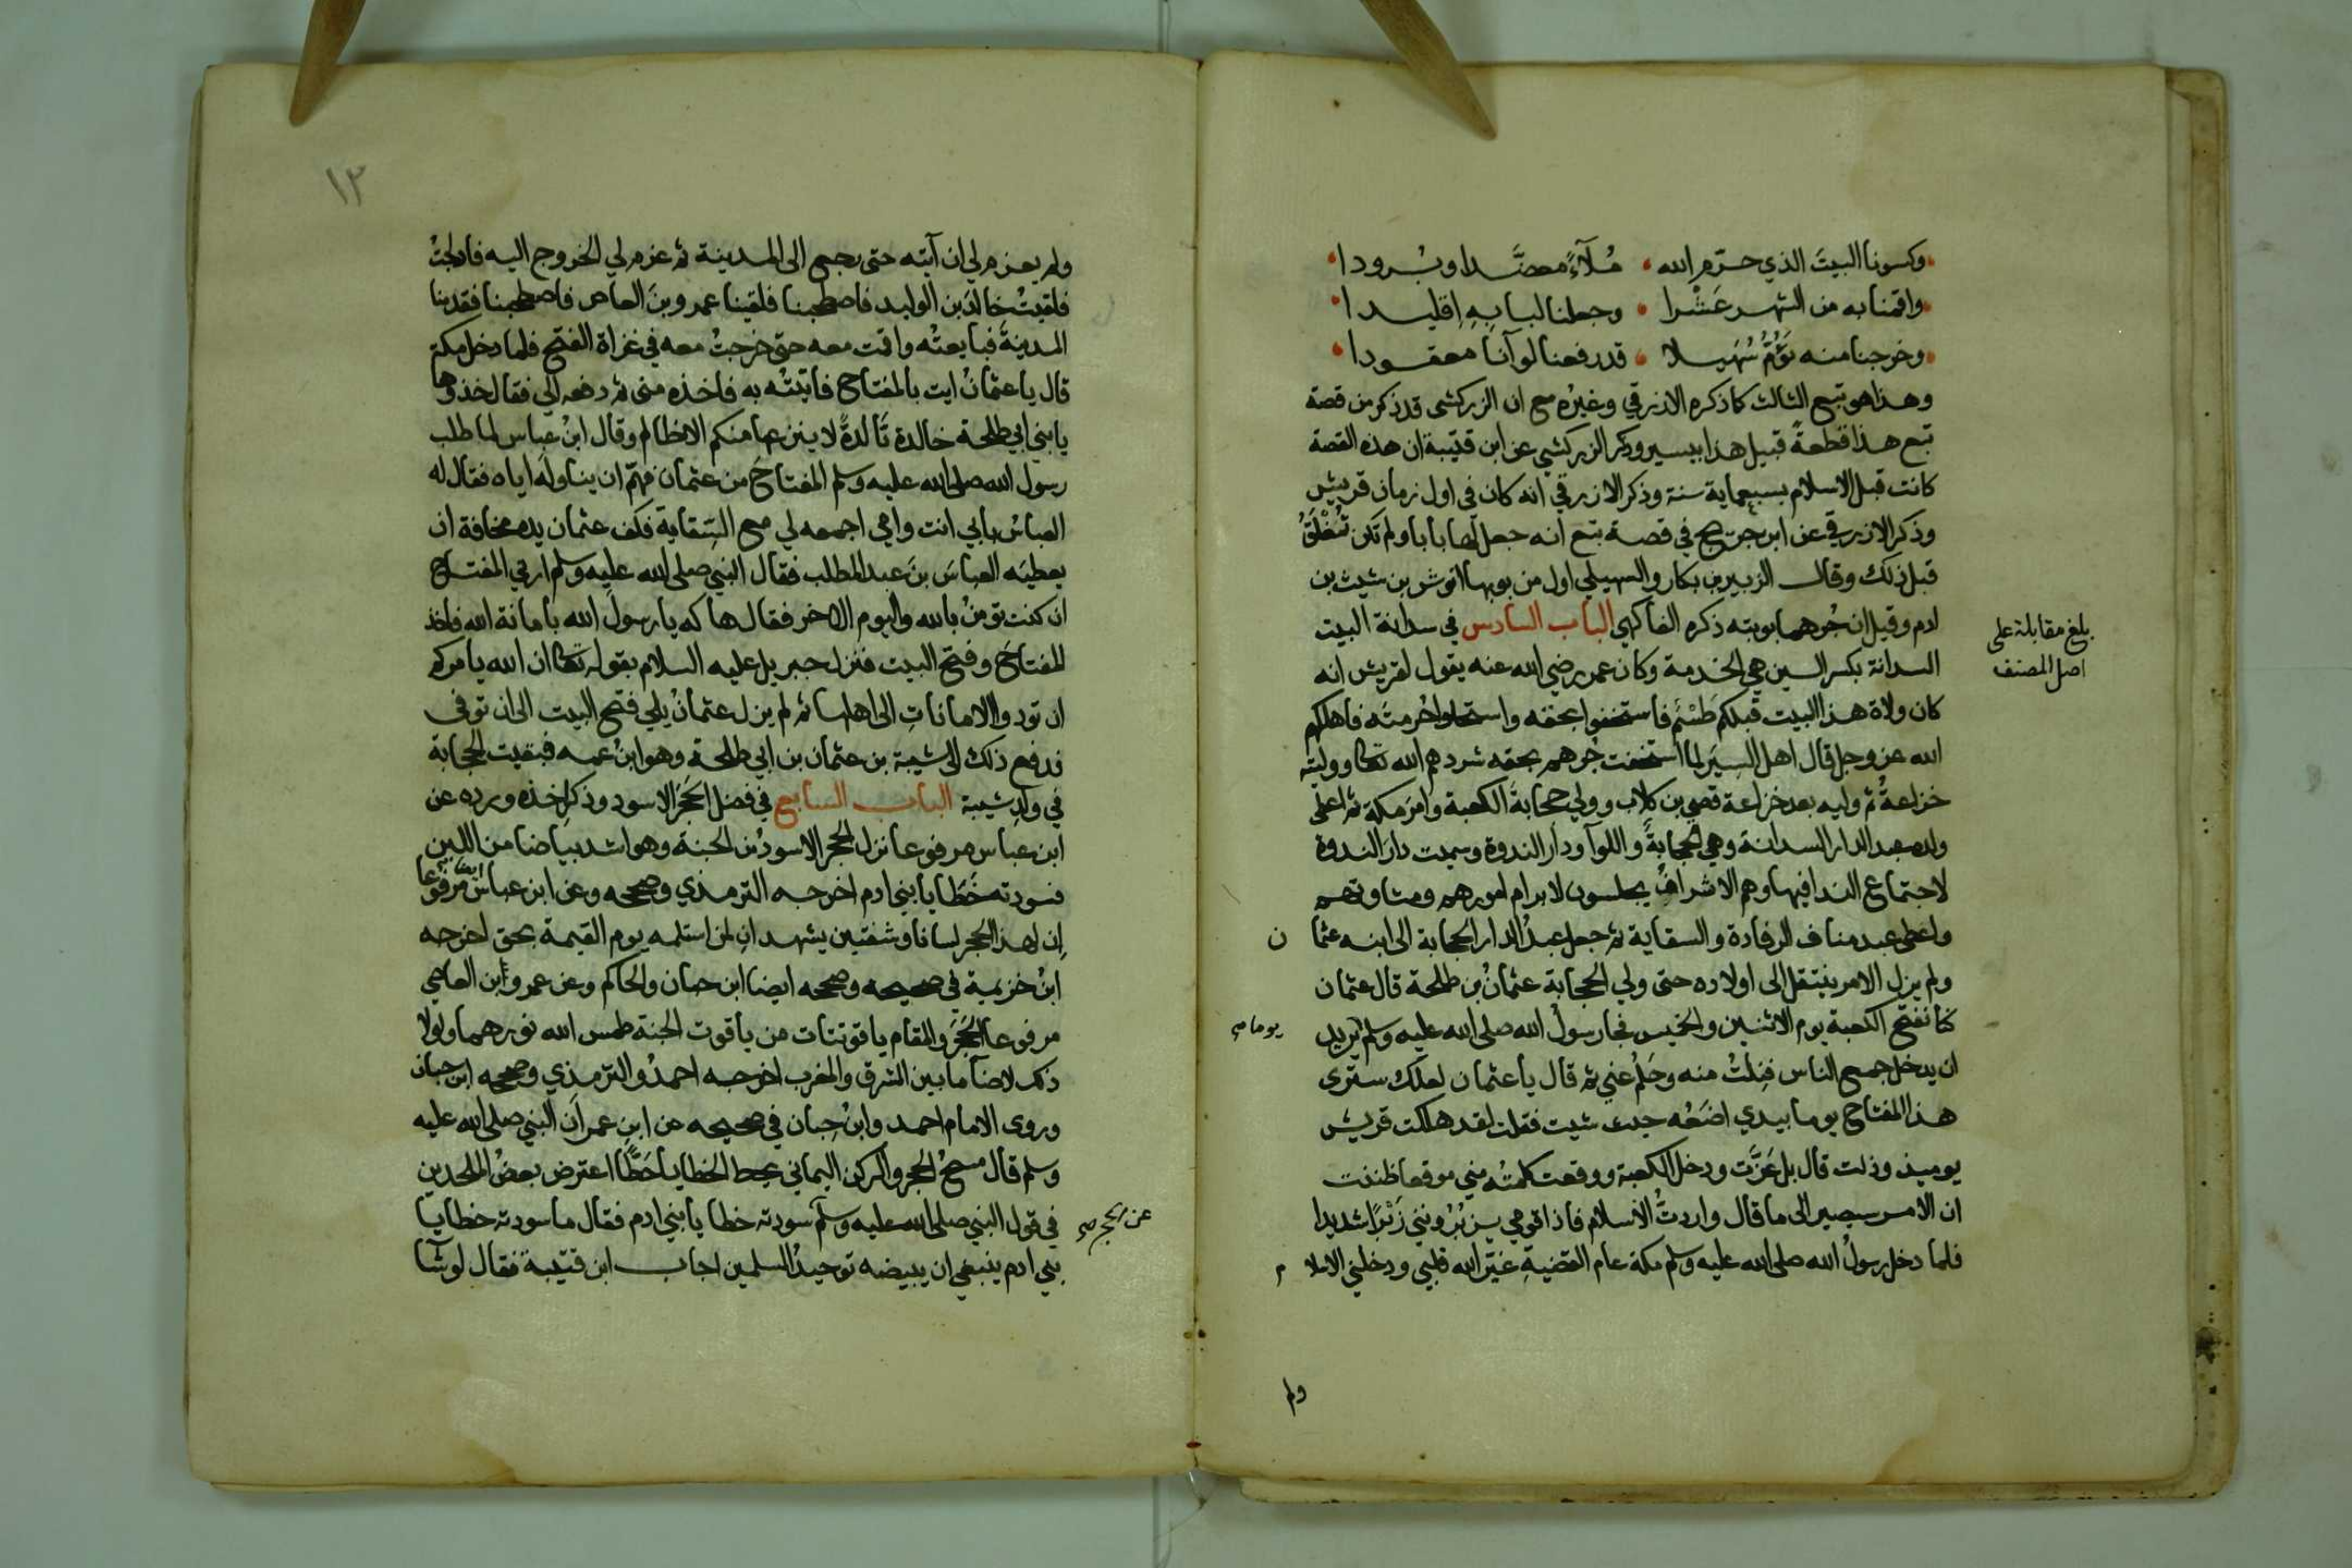 وكسونا البيتَ الذي حرّم الله • مُلآءً معضَّدا وبُرودا •
واقمنا به من الشهر عَشْرا • وجعلنا لبابِهِ اِقليدا •
وخرجنا منه نَؤُمُّ سُهَيلا • قد رفعنا لوآنا معقودا •
وهذا هو تبع الثالث كما ذكره الازرقي وغيرُه مع ان الزركشى قد ذكر من قصة
تبع هذا قطعةً قبيل هذا بيسير وذكر الزركشي عن ابن قتيبة ان هذه القصة
كانت قبل الاسلام بسبعماية سنة وذكر الازرقي انه كان في اول زمان قريش
وذكر الازرقي عن ابن جريج في قصة تبع انه جعل لها بابا ولم تكن تُغْلَقُ
قبل ذلك وقال الزبير بن بكار والسهيلي اول من بوبها انوش بن شيث بن
ادم وقيل ان جُرهما بوبته ذكره الفاكهي الباب السادس في سدانة البيت
بلغ مقابلة على
اصل المصنف
السدانة بكسر السين هي الخدمة وكان عمر رضي الله عنه يقول لقريش انه
كان ولاة هذا البيت قبلكم طَسْمَ فاستخفوا بحقه واستحلوا حُرمتَه فاهلكهم
الله عز وجل قال اهل السِيَر لما استخفت جُرهم بحقه شردهم الله تعا ووليته
خزاعةُ ثم وليه بعد خزاعة قصي بن كلاب وولي حجابةَ الكعبة وامرَ مكة ثم اعطى
ولده عبد الدار السدانة وهي الحجابةَ واللوآ ودار الندوة وسميت دار الندوة
لاجتماع الندا فيها وهم الاشرافُ يجلسون لابرام امورهم ومشاورتهم
واعطى عبد مناف الرفادة والسقاية ثم جعل عبدُ الدار الحجابة الى ابنه عثما ن
ولم يزل الامر ينتقل الى اولاده حتى ولي الحجابة عثمانُ بن طلحة قال عثمان
كنا نفتح الكعبة يوم الاثنين والخميس فجا رسولُ الله صلى الله عليه وسلم يُريد يوما صح
ان يدخل جميع الناس فنِلتُ منه وحَلُمَ عني ثم قال يا عثمان لعلك سترى
هذا المفتاح يوما بيدي اضَعُه حيث شيت فقلت لقد هلكت قريش
يوميذ وذلت قال بل عَزَّت ودخل الكعبة ووقعت كلمتُه مني موقعا ظننت
ان الامر سيصير الى ما قال واردتُ الاسلام فاذا قومي يزبُرُونني زَبْرًا شديدا
فلما دخل رسولُ الله صلى الله عليه وسلم مكة عام القضيةِ غيّر الله قلبي ودخلني الاسلا م
ولم
١٣
ولم يعزم لي ان آتيَه حتى رجع الى المدينة ثم عزم لي الخروج اليه فادلجتُ
فلقيتُ خالدَ بن الوليد فاصطحبنا فلقينا عمرو بنَ العاص فاصطحبنا فقدمنا
المدينةَ فبايعتُه واقمت معه حتى خرجتُ معه في غزاة الفتح فلما دخل مكة
قال يا عثمانُ ايت بالمفتاح فاتيتُه به فاخذه منى ثم دفعه الي فقال خذوها
يا بني ابي طلحة خالدة تالدةً لا ينزعها منكم الا ظالم وقال ابنُ عباس لما طلب
رسول الله صلى الله عليه وسلم المفتاحَ من عثمان فهمّ ان يناولَه اياه فقال له
العباسُ بابي انت وامي اجمعه لي مع السِّقاية فكف عثمان يده مخافة ان
يعطيَه العباسَ بنَ عبد المطلب فقال النبي صلى الله عليه وسلم ارني المفتاح
ان كنت تومنُ بالله واليوم الاخر فقال هاكه يا رسولَ الله بامانة الله فاخذ
المفتاحَ وفتح البيت فنزل جبريل عليه السلام بقوله تعا ان الله يامركم
ان تودوا الامانات الى اهلها ثم لم يزل عثمانُ يلي فتح البيت الى ان توفى
فدفع ذلك الى شيبة بن عثمان بن ابي طلحة وهو ابنُ عمه فبقيت الحجابة
في ولدِ شيبة الباب السابع في فضل الحَجَر الاسود وذكرِ اخذه ورده عن
ابن عباس مرفوعا نزل الحجر الاسودُ من الجنة وهو اشد بياضا من اللبن
فسودته خَطَايا بني ادم اخرجه الترمذي وصححه وعن ابن عباس ايضا مرفوعا
اِن لهذا الحجر لسانا وشفتين يشهدانِ لمن استلمه يوم القيمة بحق اخرجه
ابنُ خزيمة في صحيحه وصححه ايضا ابن حبان والحاكم وعن عمرو بن العاصي
مرفوعا الحَجَر والمقام ياقوتتان من ياقوت الجنة طمس الله نورهما ولولا
ذلك لاضآ ما بين الشرق والمغرب اخرجه احمدُ والترمذي وصححه ابن حبان
وروى الامام احمد وابنُ حِبان في صحيحه عن ابنِ عمر اَن النبي صلى الله عليه
وسلم قال مسحُ الحجر والركن اليماني يحط الخطايا حَطًّا اعترض بعضُ الملحدين
في قول النبي صلى الله عليه وسلم سودته خطايا بني ادم فقال ما سودته خطايا عن الحجر صح
بني ادم ينبغي ان يبيضه توحيدُ المسلمين اجاب ابن قتيبة فقال لو شآ